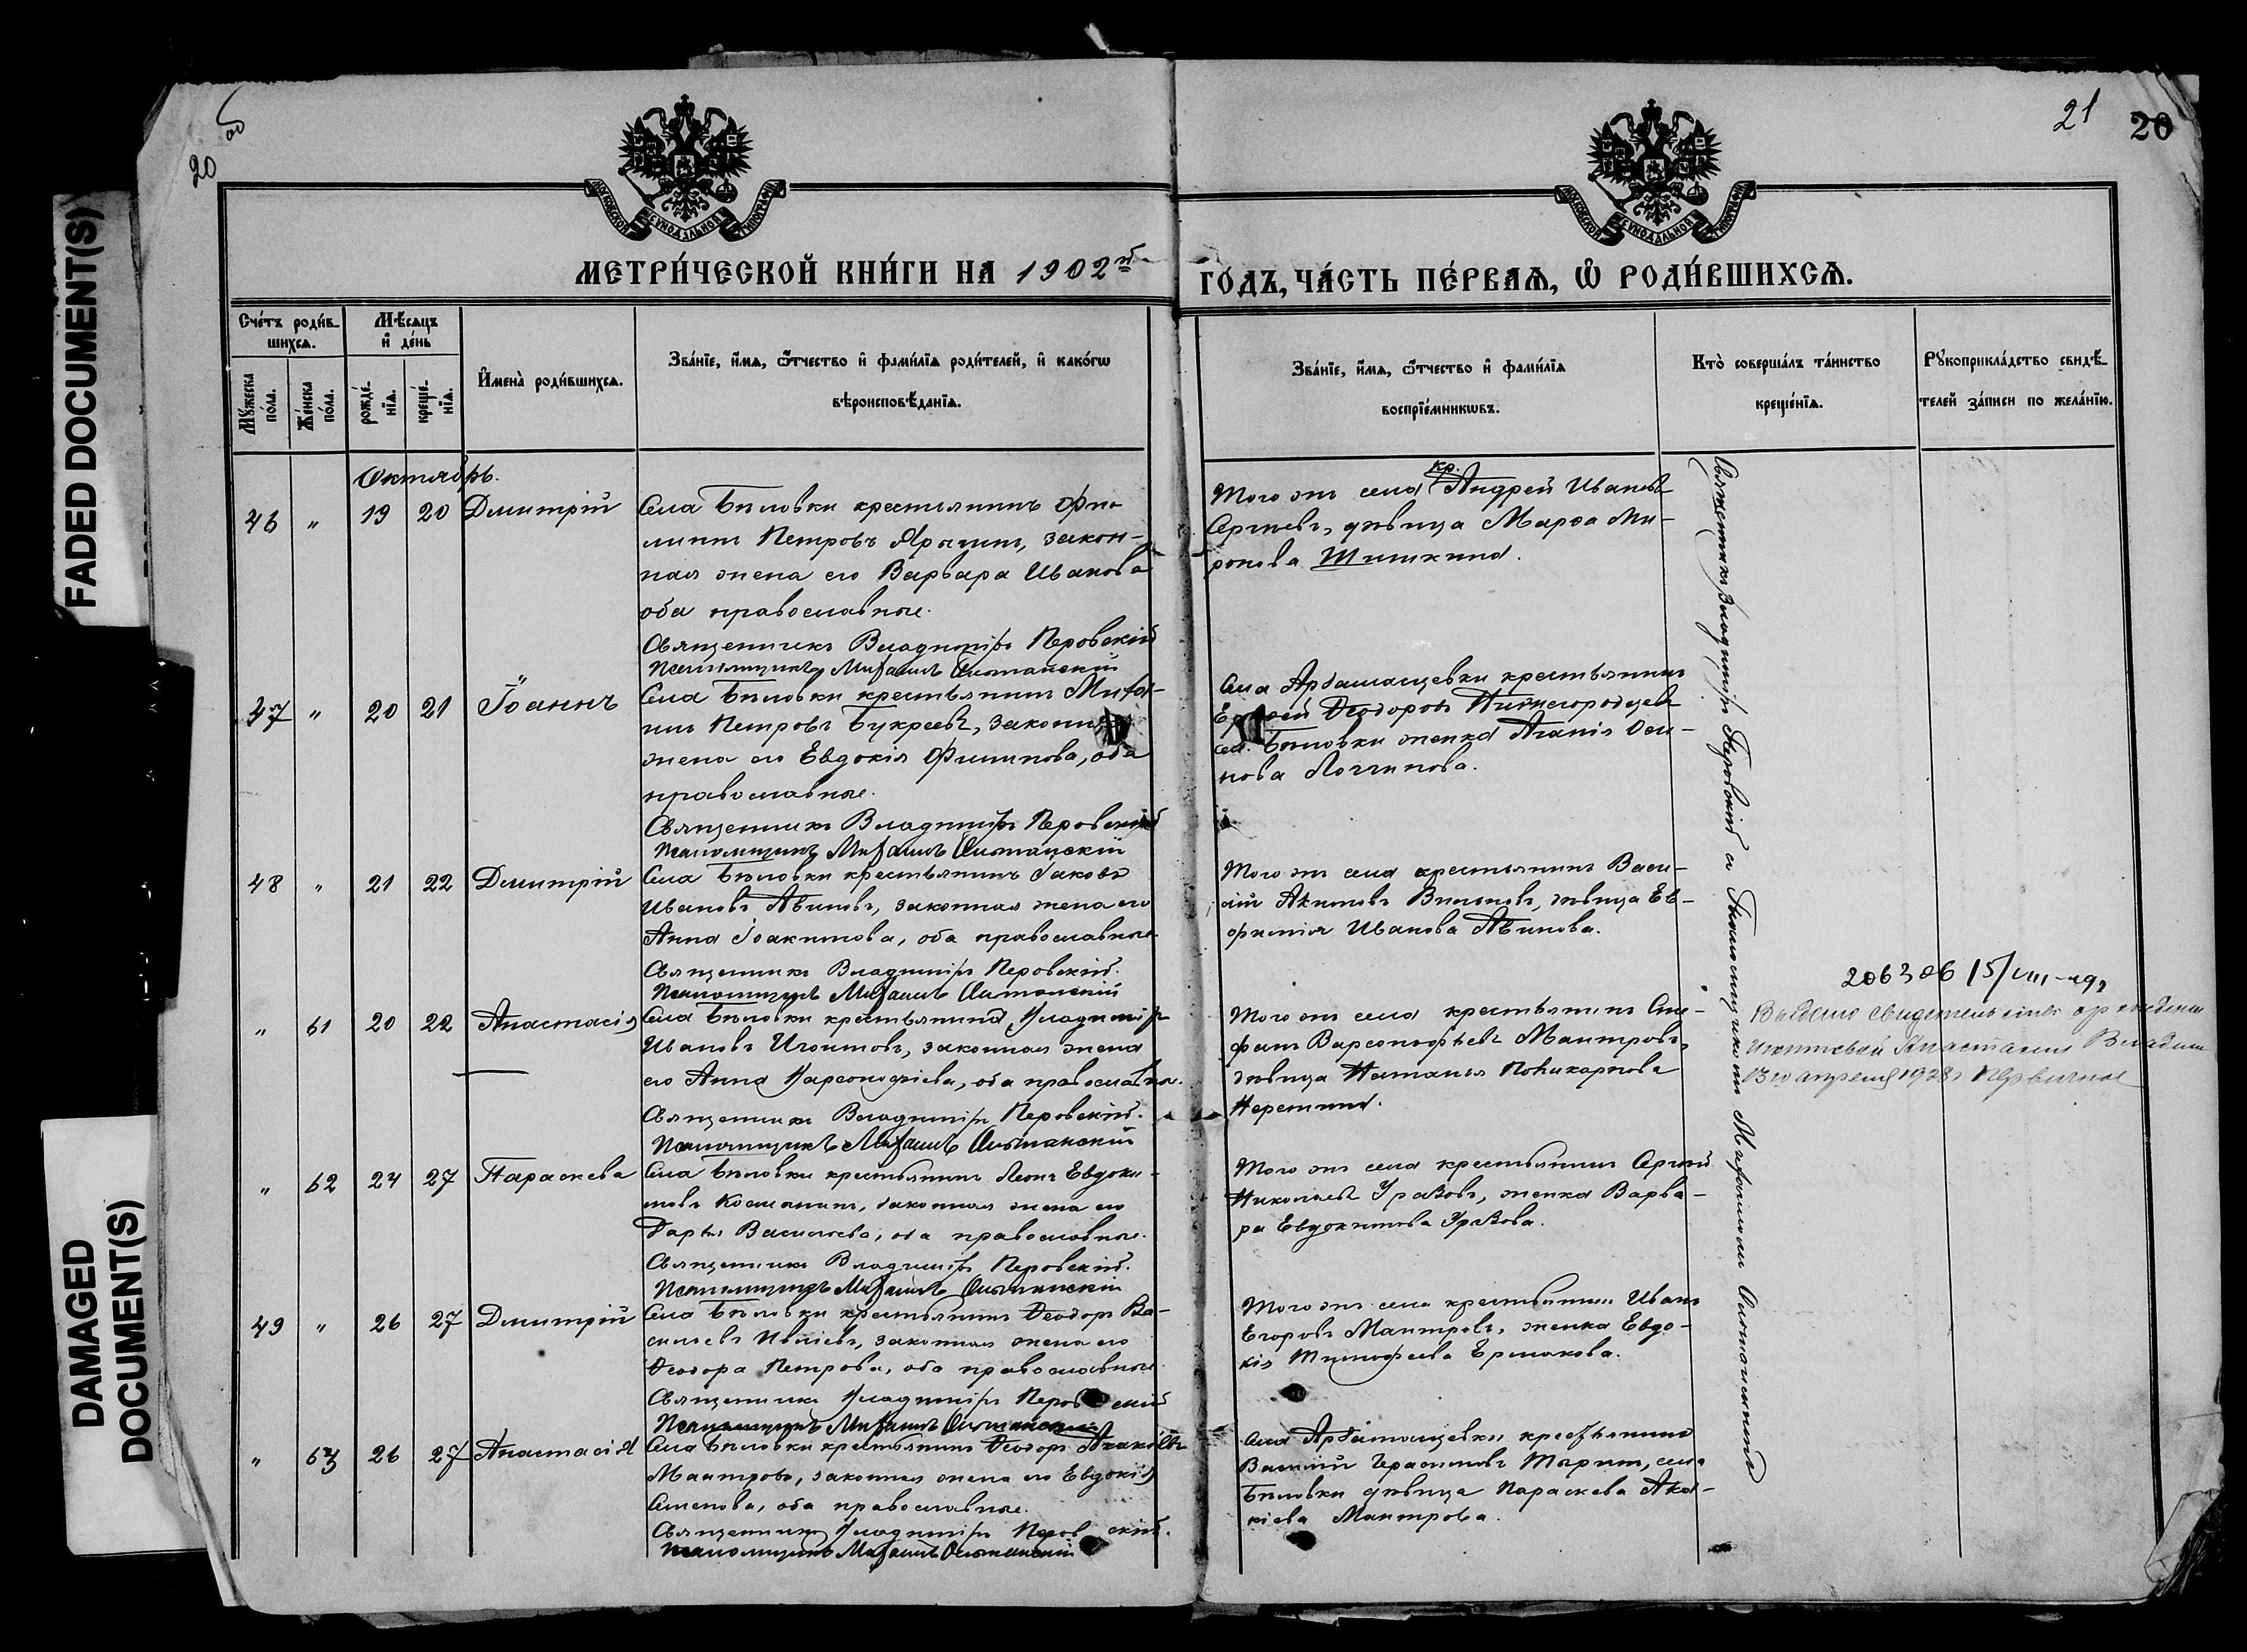 FADED DOCUMENT(S)
DAMAGED
DOCUMENT(S)
20
об
21
20
МОСКОВСКОЙ СѴНОДАЛЬНОЙ ТИПОГРАФІИ
МОСКОВСКОЙ СѴНОДАЛЬНОЙ ТИПОГРАФІИ
МЕТРИ́ЧЕСКОЙ КНИ́ГИ НА 1902й
ГО́ДЪ, ЧА́СТЬ ПЕ́РВАѦ, Ѡ҆ РОДИ́ВШИХСѦ.
Сче́тъ роди́в-
шихсѧ.
Мꙋ́жеска
по́ла.
Же́нска
по́ла.
Мѣ́сѧцъ
и҆ де́нь
рожде́-
нїѧ.
креще́-
нїѧ.
И҆мена̀ роди́вшихсѧ.
Зва́нїе, и҆́мѧ, ѻ҆́тчество и҆ фамѝлїѧ роди́телей, и҆ како́гѡ
вѣроисповѣ́данїѧ.
Зва́нїе, и҆́мѧ, ѻ҆́тчество и҆ фамѝлїѧ
воспрїе́мникѡвъ.
Кто̀ соверша́лъ та́инство
креще́нїѧ.
Рꙋкоприкла́дство свидѣ́-
телей за́писи по жела́нїю.
Октябрь.
46 " 19 20 Димитрій
Села Бѣловки крестьянинъ Фи-
липпъ Петровъ Ярыгинъ, закон-
ная жена его Варвара Иванова
оба православные.
Священникъ Владиміръ Перовскій
Псаломщикъ Михаилъ
Того же села кр. Андрей Ивановъ
Сергѣевъ, дѣвица Марѳа Ми-
ронова Шишкина.
47 " 20 21 Іоаннъ
Села Бѣловки крестьянинъ Миха-
илъ Петровъ Букреевъ, законная
жена его Евдокія Филипова, оба
православные.
Священникъ Владиміръ Перовскій
Псаломщикъ Михаилъ
Села крестьянинъ
Ѳеодоровъ Нижегородцевъ
сел. Бѣловки женка Агапія Оси-
пова Логгинова.
48 " 21 22 Димитрій
Села Бѣловки крестьянинъ Іаковъ
Ивановъ Авиловъ, законная жена его
Анна Іоакимова, оба православные.
Священникъ Владиміръ Перовскій.
Псаломщикъ Михаилъ
Того же села крестьянинъ Васи-
лій Акимовъ дѣвица Ев-
фимія Иванова Авинова.
" 61 20 22 Анастасія
Села Бѣловки крестьянинъ Владиміръ
Ивановъ законная жена
его Анна Варсонофіева, оба православные.
Священникъ Владиміръ Перовскій.
Псаломщикъ Михаилъ
Того же села крестьянинъ Сте-
фанъ Варсонофьевъ Маитровъ,
дѣвица Наталья Поликарпова
206306 15/VIII-49г
Выдано свидетельство о рождении
Анастасии Владим
13 го апреля 1928г
" 62 24 27 Параскева
Села Бѣловки крестьянинъ Леонъ Евдоки-
мовъ законная жена его
Дарья Васильева, оба православные.
Священникъ Владиміръ Перовскій.
Псаломщикъ Михаилъ
Того же села крестьянинъ Сергѣй
Николаевъ Уразовъ, женка Варва-
ра Евдокимова Уразова.
49 " 26 27 Димитрій
Села Бѣловки крестьянинъ Ѳеодоръ Ва-
сильевъ законная жена его
Ѳеодора Петрова, оба православные.
Священникъ Владиміръ Перовскій
Псаломщикъ Михаилъ
Того же села крестьянинъ Иванъ
Егоровъ Маитровъ, женка Евдо-
кія Тимофеева Ермакова.
" 63 26 27 Анастасія
Села Бѣловки крестьянинъ Ѳеодоръ Акакіевъ
Маитровъ, законная жена его Евдокія
оба православные.
Священникъ Владиміръ Перовскій.
Псаломщикъ Михаилъ
Села крестьянинъ
Василій Герасимовъ села
Бѣловки дѣвица Параскева Ака-
кіева Маитрова.
Священникъ Владиміръ Перовскій съ Псаломщикомъ Михаиломъ